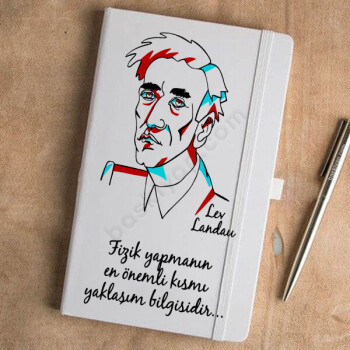 Lev
Landau
Fizik yapmanın
en önemli kısmı
yaklaşım bilgisidir...